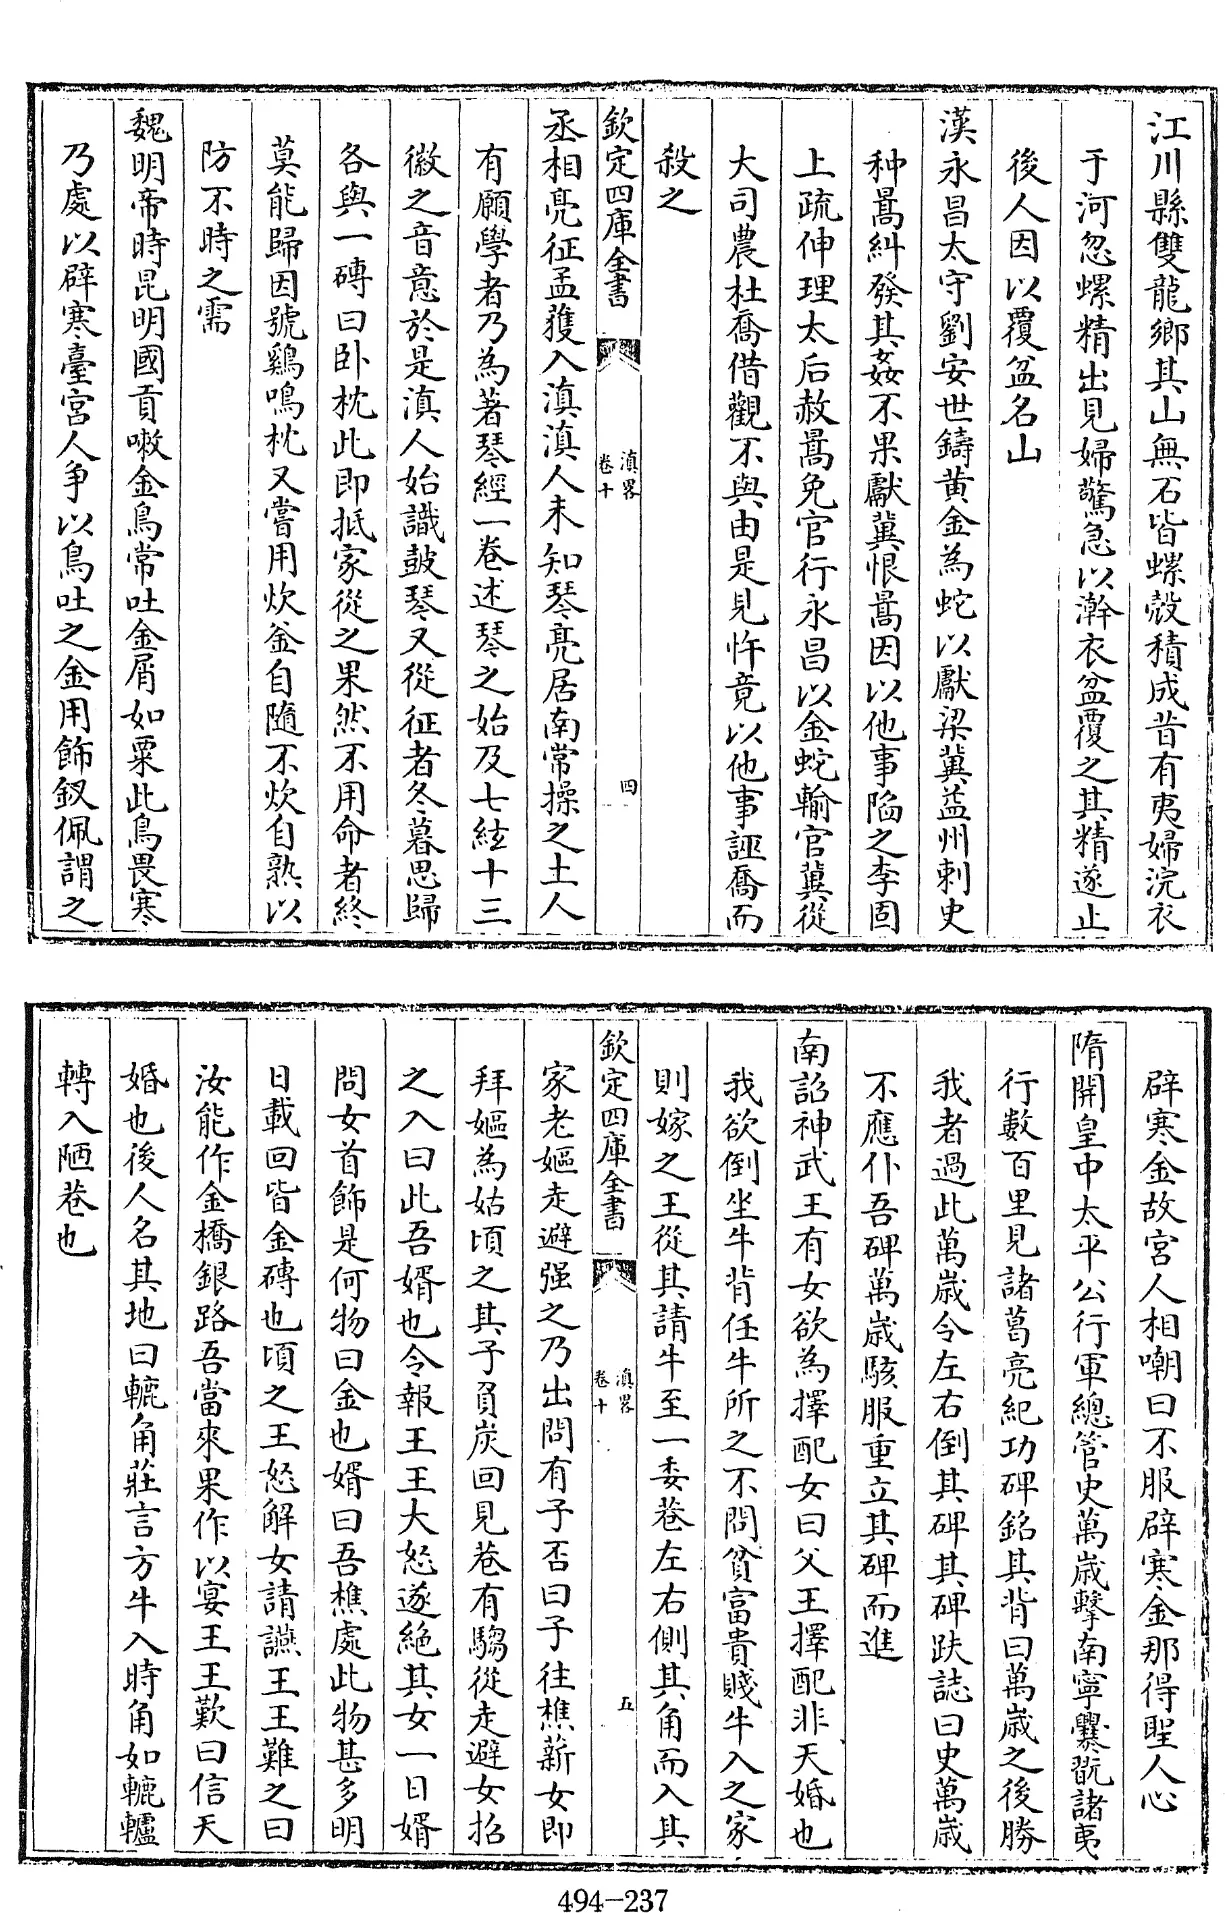 江川縣雙龍鄉其山無石皆螺殼積成昔有夷婦浣衣
于河忽螺精出見婦驚急以澣衣盆覆之其精遂止
後人因以覆盆名山
漢永昌太守劉安世鑄黄金為蛇以獻梁冀益州刺史
种暠糾發其姦不果獻冀恨暠因以他事陷之李固
上疏伸理太后赦暠免官行永昌以金蛇輸官冀從
大司農杜喬借觀不與由是見忤竟以他事誣喬而
殺之
欽定四庫全書
滇畧
卷十
四
丞相亮征孟獲入滇滇人未知琴亮居南常操之土人
有願學者乃為著琴經一卷述琴之始及七絃十三
徽之音意於是滇人始識鼓琴又從征者冬暮思歸
各與一磚曰卧枕此即抵家從之果然不用命者終
莫能歸因號鷄鳴枕又嘗用炊釜自隨不炊自熟以
防不時之需
魏明帝時昆明國貢嗽金鳥常吐金屑如粟此鳥畏寒
乃處以辟寒臺宮人争以鳥吐之金用飾釵佩謂之
辟寒金故宮人相嘲曰不服辟寒金那得聖人心
隋開皇中太平公行軍總管史萬歲擊南寧爨翫諸夷
行數百里見諸葛亮紀功碑銘其背曰萬歲之後勝
我者過此萬歲令左右倒其碑其碑趺誌曰史萬歲
不應仆吾碑萬歲駭服重立其碑而進
南詔神武王有女欲為擇配女曰父王擇配非天婚也
我欲倒坐牛背任牛所之不問貧富貴賤牛入之家
則嫁之王從其請牛至一委巷左右側其角而入其
欽定四庫全書
滇畧
卷十
五
家老嫗走避强之乃出問有子否曰子往樵薪女即
拜嫗為姑頃之其子負炭回見巷有騶從走避女招
之入曰此吾婿也令報王王大怒遂絶其女一日婿
問女首飾是何物曰金也婿曰吾樵處此物甚多明
日載回皆金磚也頃之王怒解女請讌王王難之曰
汝能作金橋銀路吾當來果作以宴王王歎曰信天
婚也後人名其地曰轆角莊言方牛入時角如轆轤
轉入陋巷也
494-237